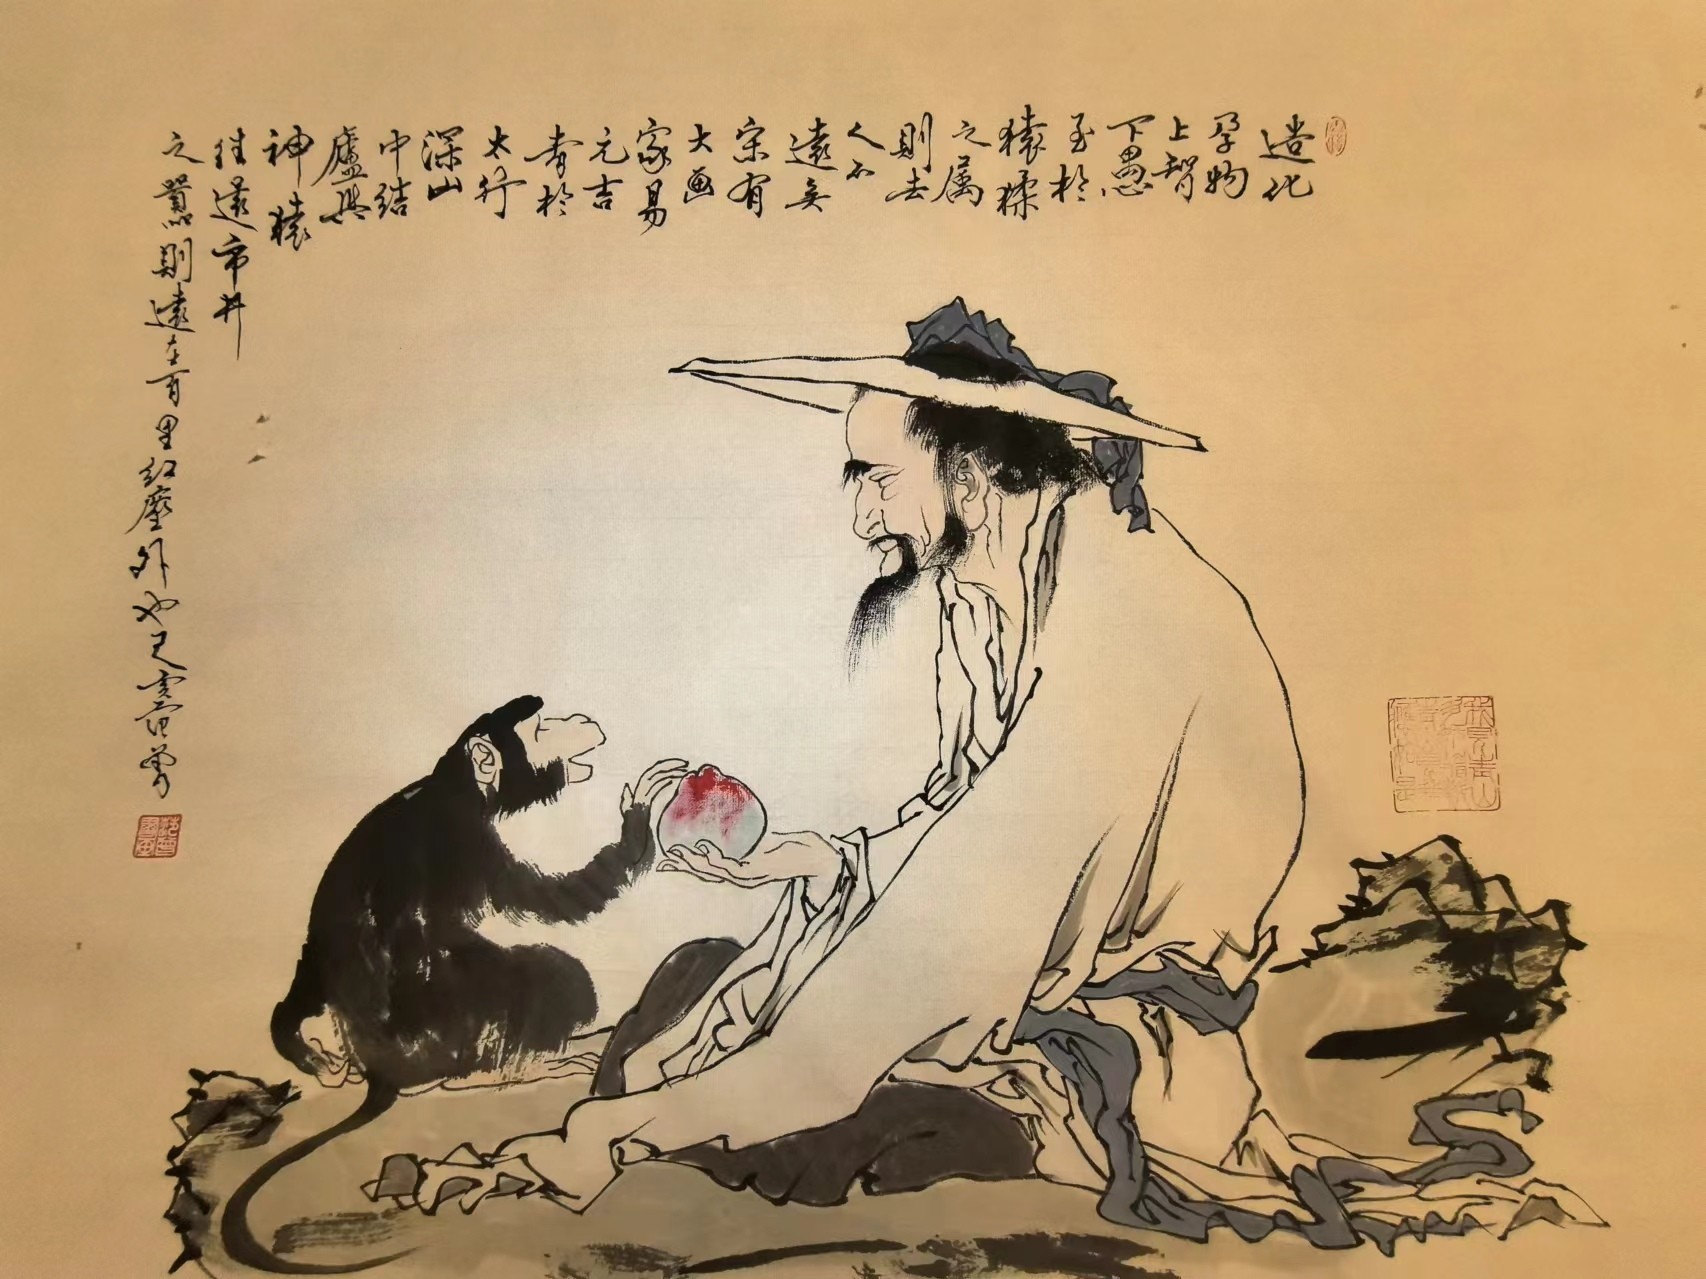 造化
孕物
上智
下愚
至於
猿猱
之屬
則去
人不
遠矣
宋有
大画
家易
元吉
者於
太行
深山
中結
廬與
神猿
往還市井
之囂則遠在百里紅塵外也己亥范曾